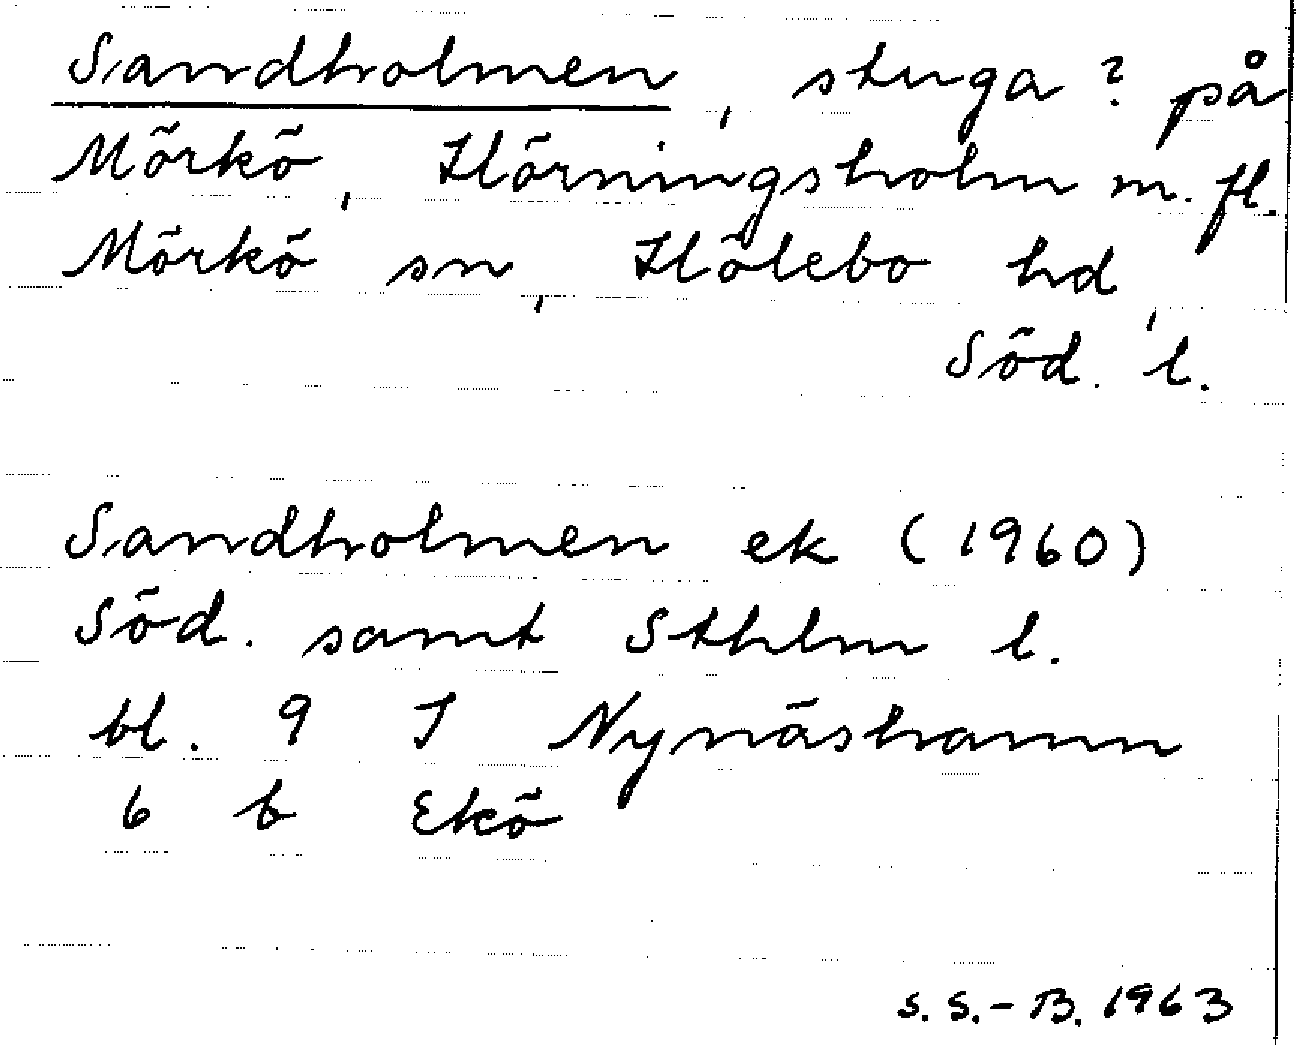 Sandholmen, stuga? på
Mörkö, Hörningsholm m.fl.
Mörkö sn, Hölebo hd,
Söd. l.
Sandholmen ek (1960)
Söd. samt Sthlm l.
bl. 9 I Nynäshamn
6 b Ekö
S. S.-B. 1963